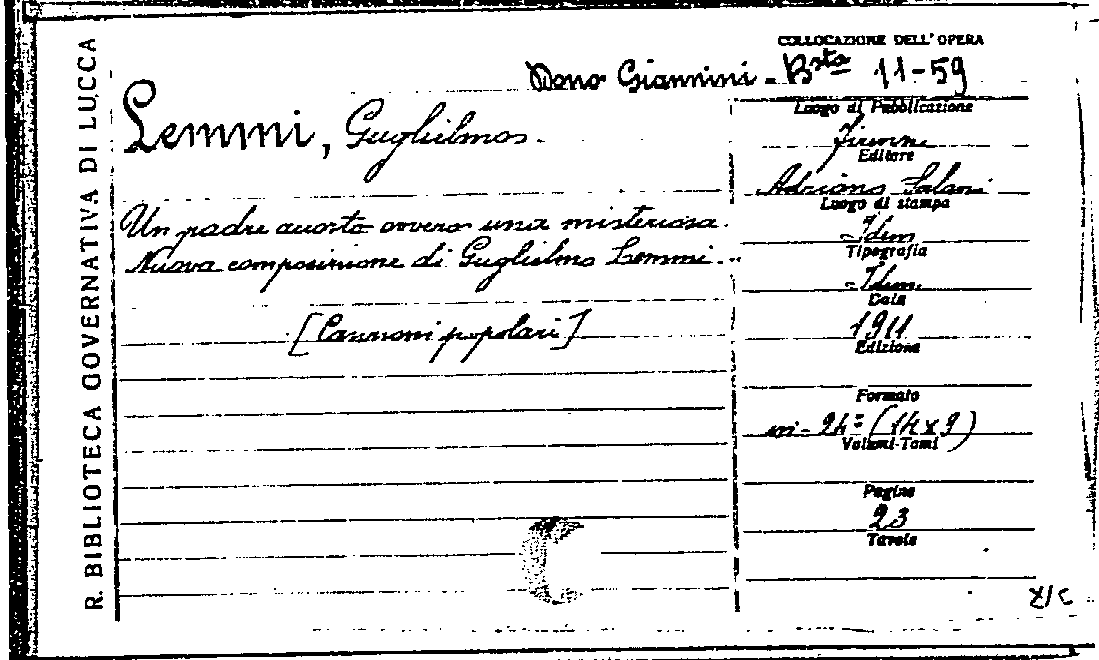 R. BIBLIOTECA GOVERNATIVA DI LUCCA
COLLOCAZIONE DELL'OPERA
Dono Giannini - Bsta 11-59
Lemmi, Guglielmo.
Un padre ovvero una misteriosa.
Nuova composizione di Guglielmo Lemmi.
[Canzoni popolari]
Luogo di Pubblicazione
Firenze
Editore
Adriano Salani
Luogo di stampa
Idem
Tipografia
Idem
Data
1911
Edizione
Formato
in-24° (14x9)
Volumi-Tomi
Pagine
23
Tavole